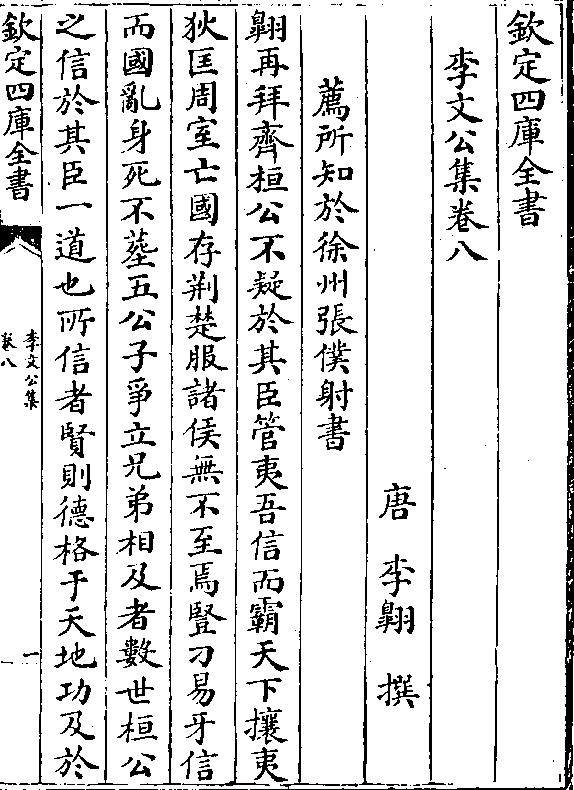 欽定四庫全書
李文公集卷八
唐 李翺 撰
薦所知於徐州張僕射書
翺再拜齊桓公不疑於其臣管夷吾信而霸天下攘夷
狄匡周室亡國存荆楚服諸侯無不至焉豎刁易牙信
而國亂身死不塟五公子爭立兄弟相及者數世桓公
之信於其臣一道也所信者賢則德格于天地功及於
欽定四庫全書
李文公集
卷八
一